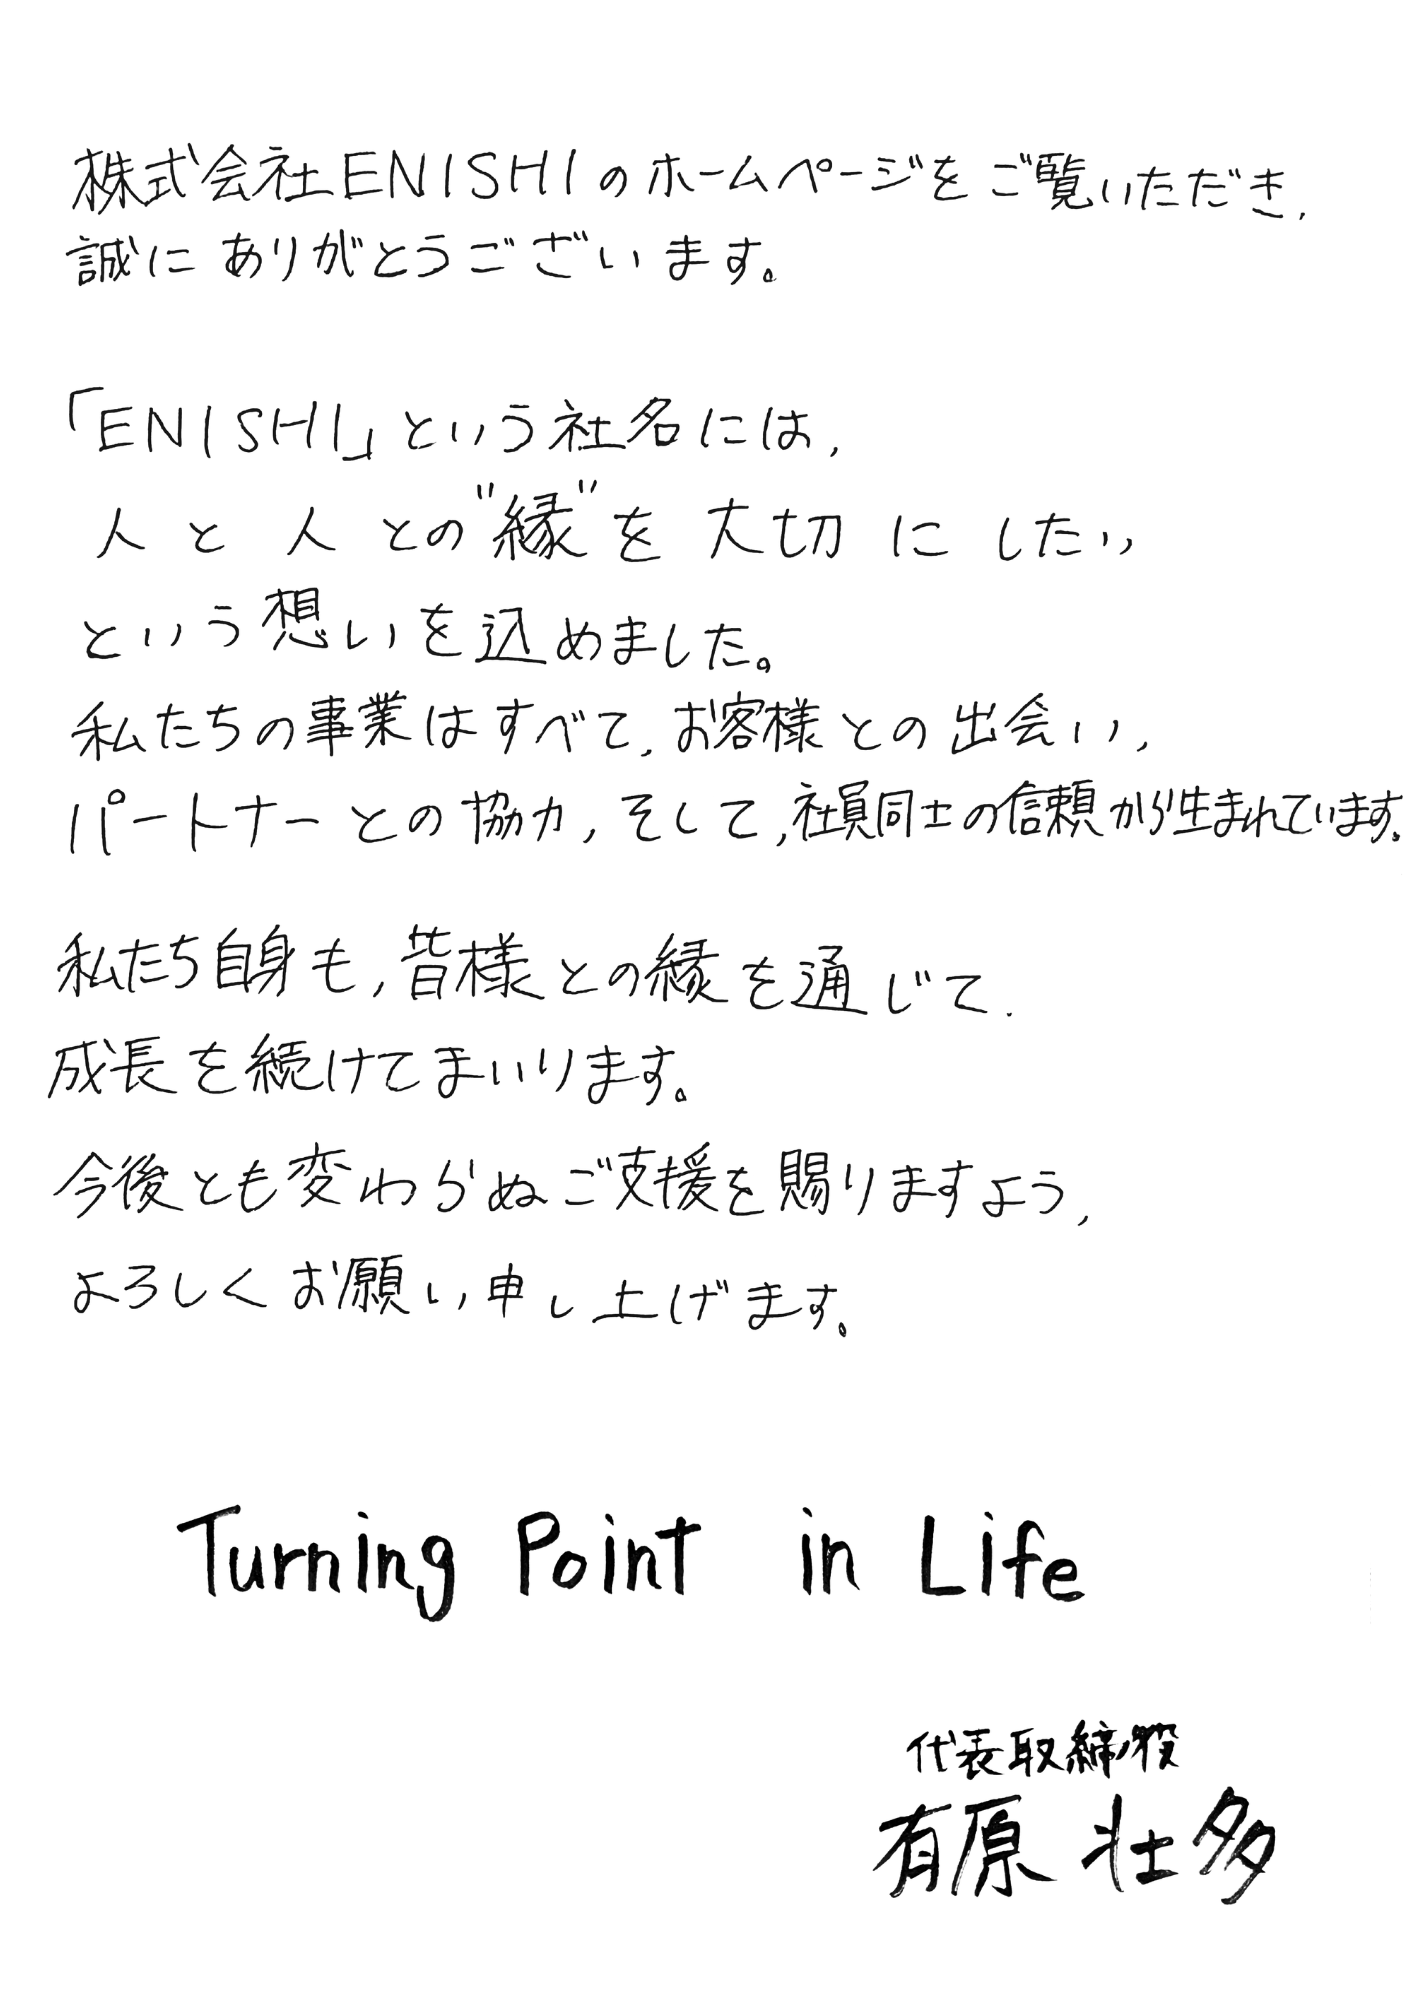 株式会社ENISHIのホームページをご覧いただき、
誠にありがとうございます。
「ENISHI」という社名には、
人と人との"縁"を大切にしたい
という想いを込めました。
私たちの事業はすべて、お客様との出会い、
パートナーとの協力、そして、社員同士の信頼から生まれています。
私たち自身も、皆様との縁を通じて、
成長を続けてまいります。
今後とも変わらぬご支援を賜りますよう、
よろしくお願い申し上げます。
Turning Point in Life
代表取締役
有原 壮多